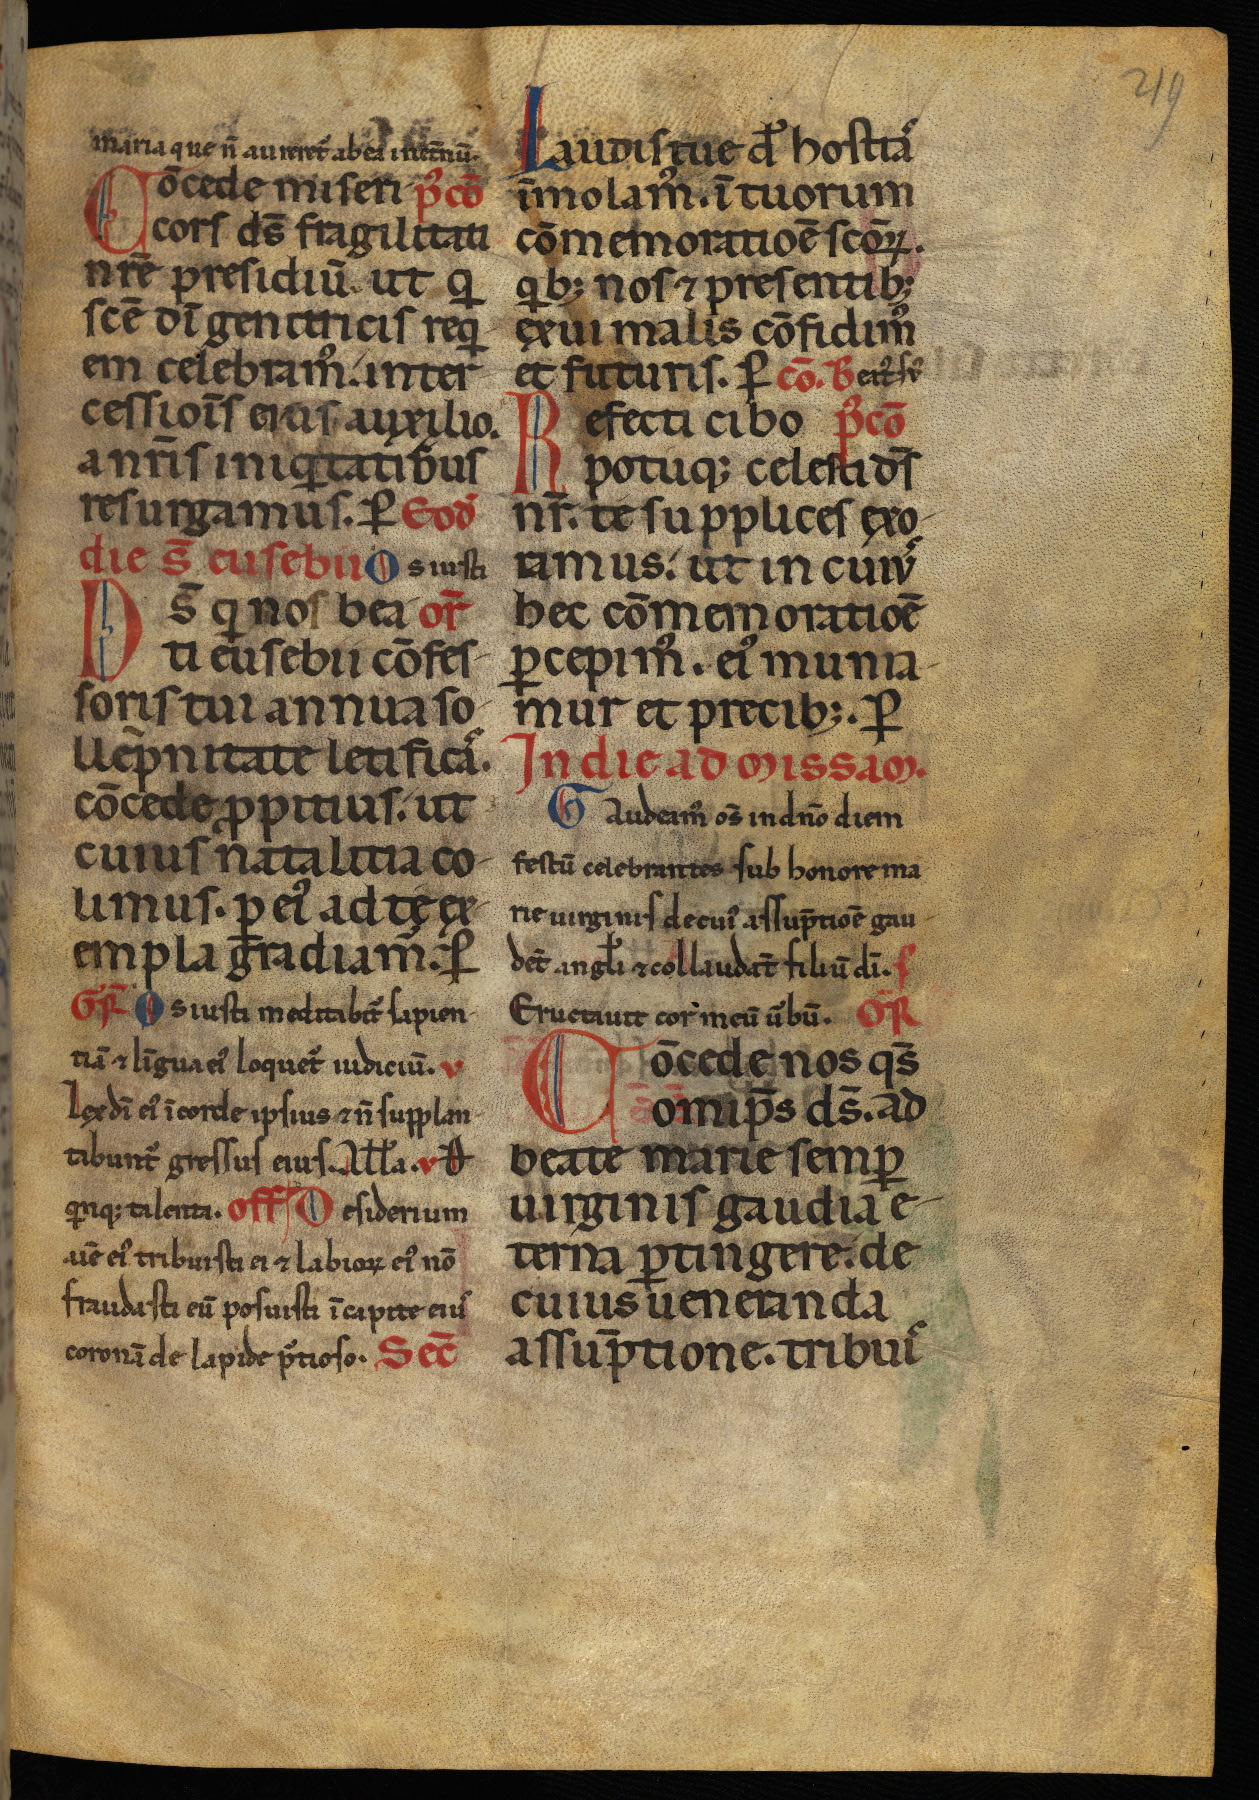 219
maria que n̄ auferet᷑ ab ea inet̄nū.
Cōcede miseri p̄᷒cō
cors ds̄ fragilitati
nr̄e presidiū. ut q̲i
sc̄e dī genitricis req̲i
em celebram᷒. inter
cessiōis eius auxilio.
a nr̄is iniq̲itatibus
resurgamus. ꝑ Eod̄
die s̄ eusebii Os iusti
Ds̄ qi nos bea or̄
ti eusebii cōfes-
soris tui annua so-
lle̅pnitate letificas.
cōcede ꝓpitius. ut
cuius natalitia co-
limus. ꝑ ei᷒ ad te ex-
empla gradiam᷒. ꝑ
GR̄ Os iusti meditabit᷑ sapien-
tiā ⁊ līgua ei᷒ loquet᷑ iudiciū. v
Lex dī ei᷒ ī corde ipsius ⁊ n̄ supplan-
tabunt᷑ gressus eius. All̄a. v D̄
qinq; talenta. off̄ Desiderium
aīe ei᷒ tribuisti ei ⁊ labioꝝ ei᷒ nō
fraudasti eū posuisti ī capite eius
coronā de lapide p̄tioso. Sec̄
Laudis tue dn̄e hostias
īmolam᷒. ī tuorum
cōmemoratiōe sc̄oꝝ.
qib; nos ⁊ presentib;
exui malis cōfidim᷒
et futuris. ꝑ cō. Beat᷒ ser᷒
Refecti cibo p̄᷒cō
potuq; celesti ds̄
nr̄. te supplices exo-
ramus. ut in cui᷒
hec cōmemoratiōe
ꝑcepim᷒. ei᷒ munia-
mur et precib;. ꝑ
In die ad missam.
Gaudeam᷒ os̄ in dn̄o diem
festū celebrantes sub honore ma
rie uirginis de cui᷒ assūptiōe gau-
det̄ angl̄i ⁊ collaudat̄ filiū dī. ſ
Eructauit cor meū ūbū. OR̄
Cōcede nos qs̄
omip̄s ds̄. ad
beate marie semꝑ
uirginis gaudia e-
terna ꝑtingere. de
cuius ueneranda
assūptione. tribuis